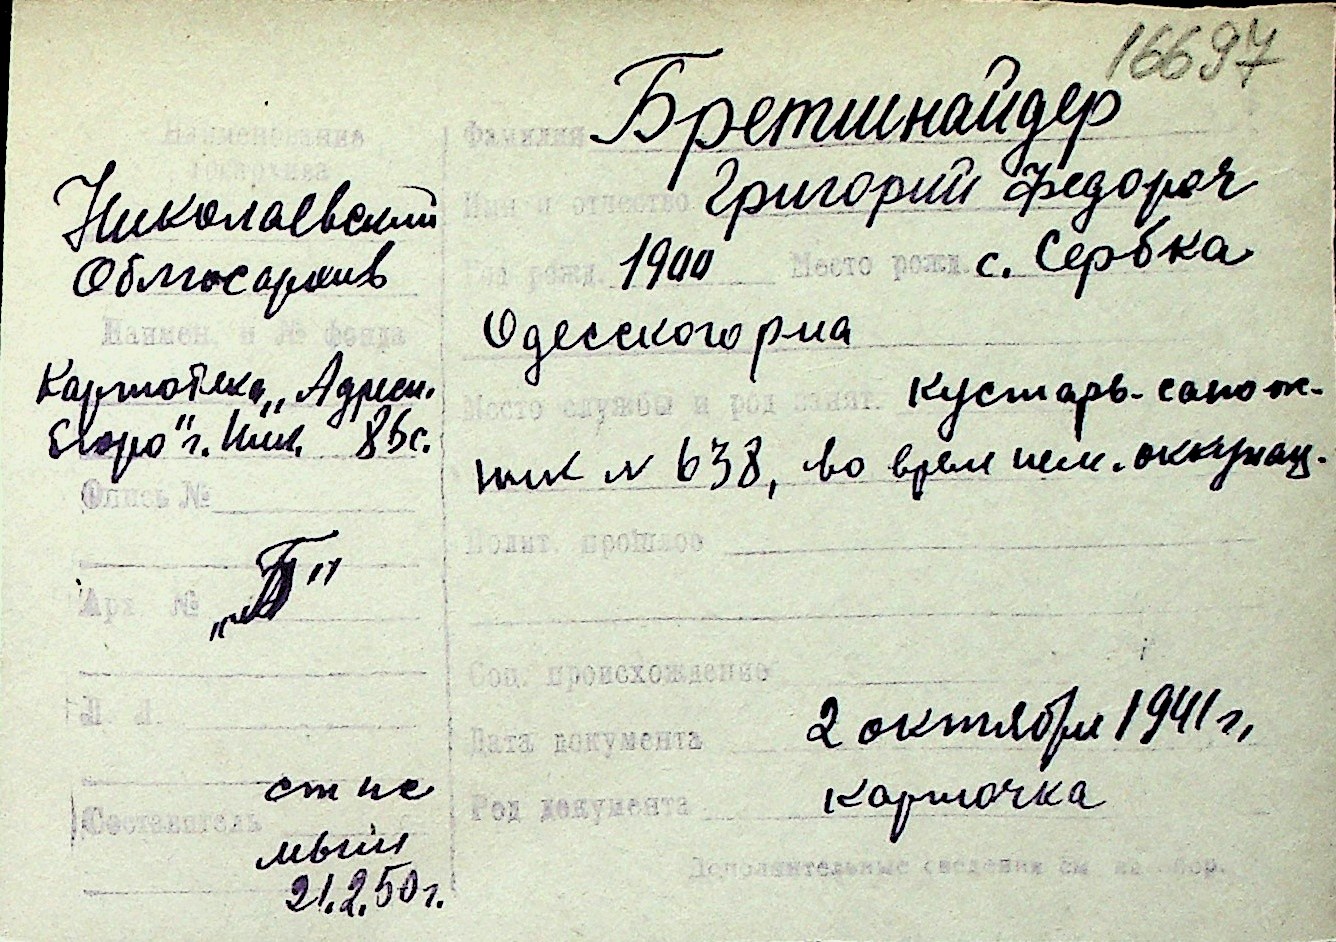 16697
Наименование
госархива
Николаевский
Облгосархив
Наимен. и № фонда
Картотека „Адресн.
бюро" г. Ник. 85с.
Опись №
„Б"
Арх. №
Л. Л.
Составитель ст нс
21.2.50г.
Фамилия Бретшнайдер
Имя и отчество Григорий Федоров
Год рожд. 1900 Место рожд. с. Сербка
Одесского р-на
Место службы и род занят. кустарь-сапож-
ник N 638, во врем нем. оккупац.
Полит. прошлое
Соц. происхождение
Дата документа 2 октября 1941 г.
Род документа карточка
Дополнительные сведения см на обор.